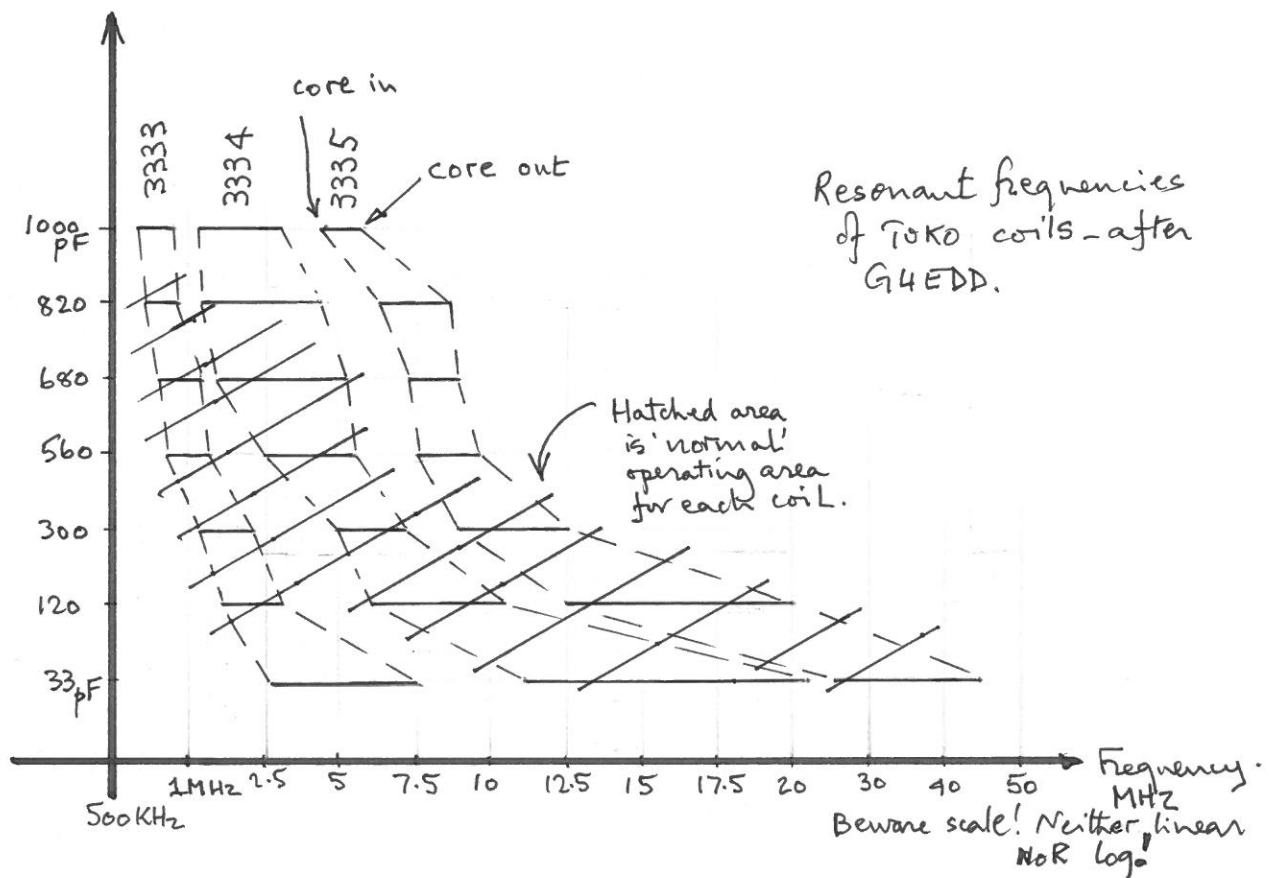 core in
3333
3334
3335
core out
Resonant frequencies
of TOKO coils - after
G4EDD.
1000
pF
820
680
560
300
120
33
pF
Hatched area
is 'normal'
operating area
for each coil.
500KHz
1MHz 2.5 5 7.5 10 12.5 15 17.5 20 30 40 50
Frequency.
MHz
Beware scale! Neither linear
NOR log!